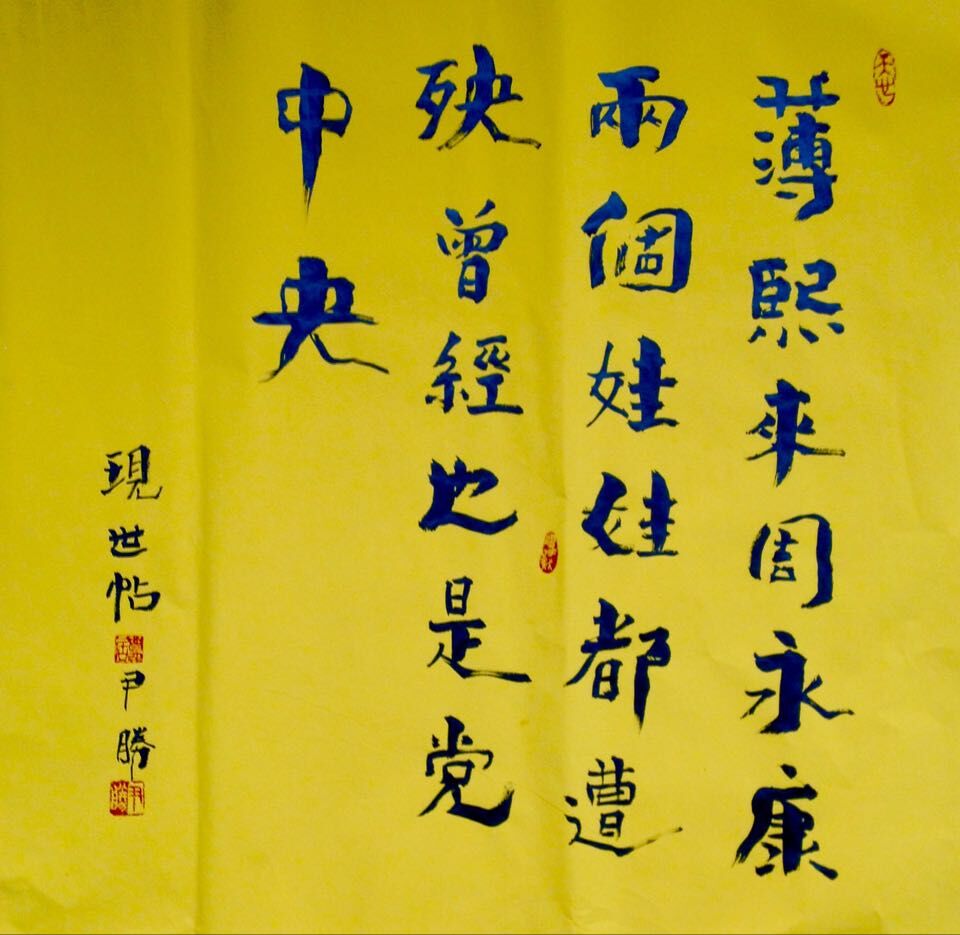 薄熙來周永康
兩個娃娃都遭
殃曾經也是党
中央
現世帖
尹勝